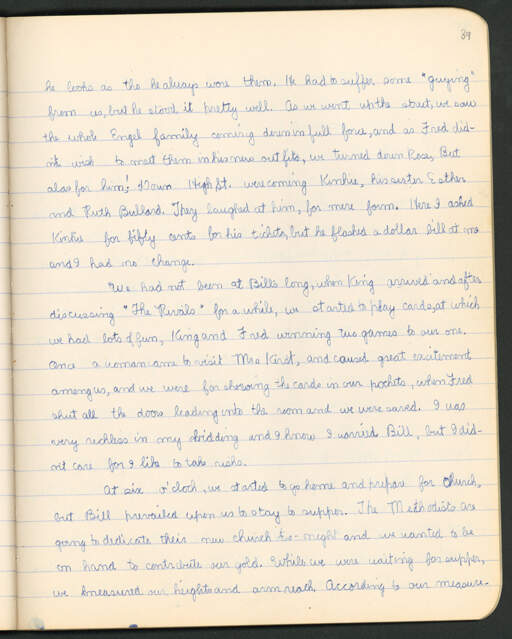 39
he looks as tho he always wore them. He had to suffer some "guying"
from us, but he stood it pretty well. As we went up the street, we saw
the whole Engel family coming down in full force, and as Fred did-
n't wish to meet them in his new outfits, we turned down Rose, But
alas for him! Down High St. were coming Kinkie, his sister Esther
and Ruth Bullard. They laughed at him, for mere form. Here I asked
Kinkie for fifty cents for his tickets, but he flashed a dollar bill at me
and I had no change.
We had not been at Bill's long, when King arrived and after
discussing "The Rivals" for a while, we started to play cards, at which
we had lots of fun, King and Fred winning two games to our one.
Once a woman came to visit Mrs Kirst, and caused great excitement
among us, and we were for shoving the cards in our pockets, when Fred
shut all the doors leading into the room and we were saved. I was
very reckless in my bidding and I know I worried Bill, but I did-
n't care for I like to take risks.
At six o'clock, we started to go home and prepare for church,
but Bill prevailed upon us to stay to supper. The Methodists are
going to dedicate their new church to-night and we wanted to be
on hand to contribute our gold. While we were waiting for supper,
we measured our heights and arm reach. According to our measure-